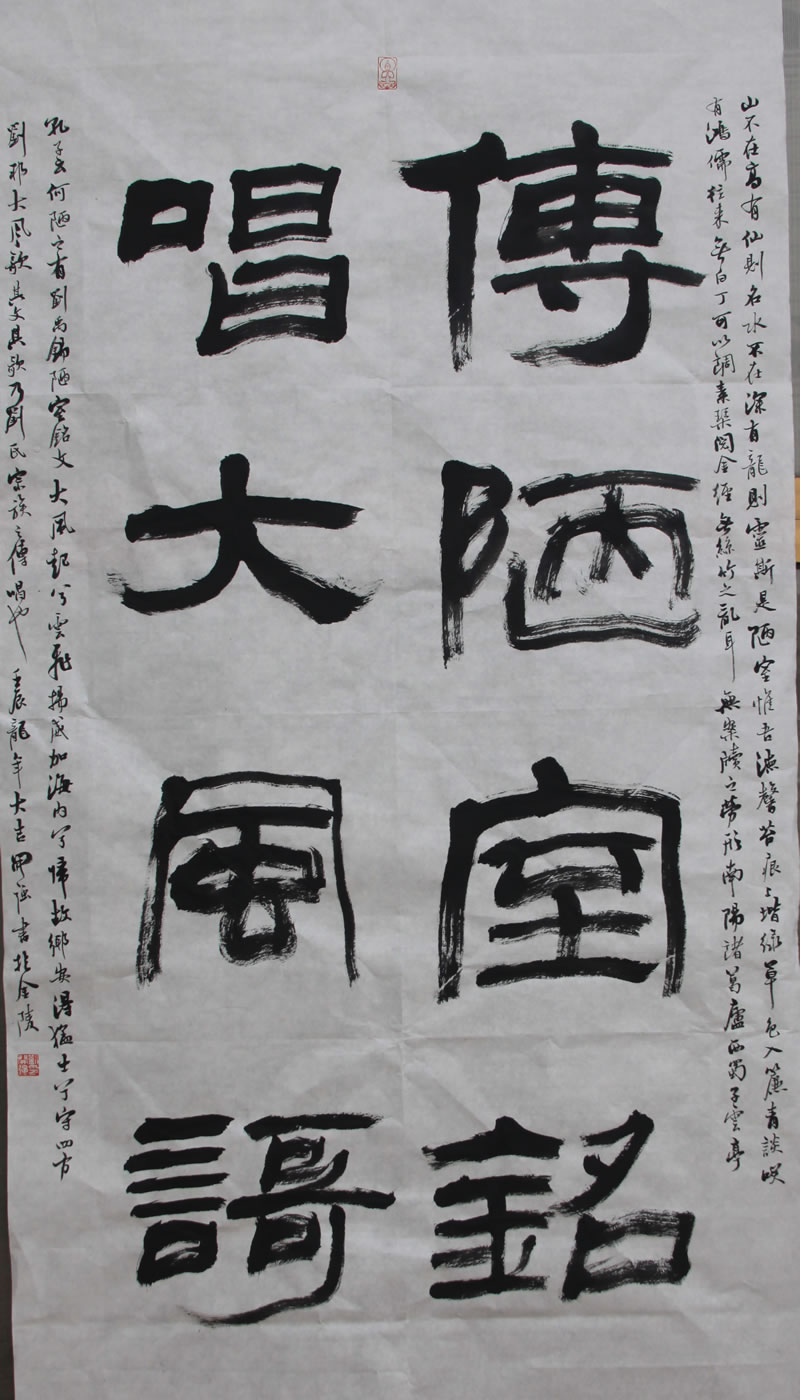 山不在高有仙則名水不在深有龍則靈斯是陋室惟吾德馨苔痕上堦綠草色入簾青談咲
有鴻儒往来無白丁可以調素琴閱金經無絲竹之亂耳無案牘之勞形南陽諸葛廬西蜀子雲亭
傳陋室銘
唱大風謌
孔子云何陋之有劉禹錫陋室銘文大風起兮雲飛揚威加海内兮歸故鄉安得猛士兮守四方
劉邦大风歌其文其歌乃劉氏宗族之傳唱也壬辰龍年大吉書於金陵